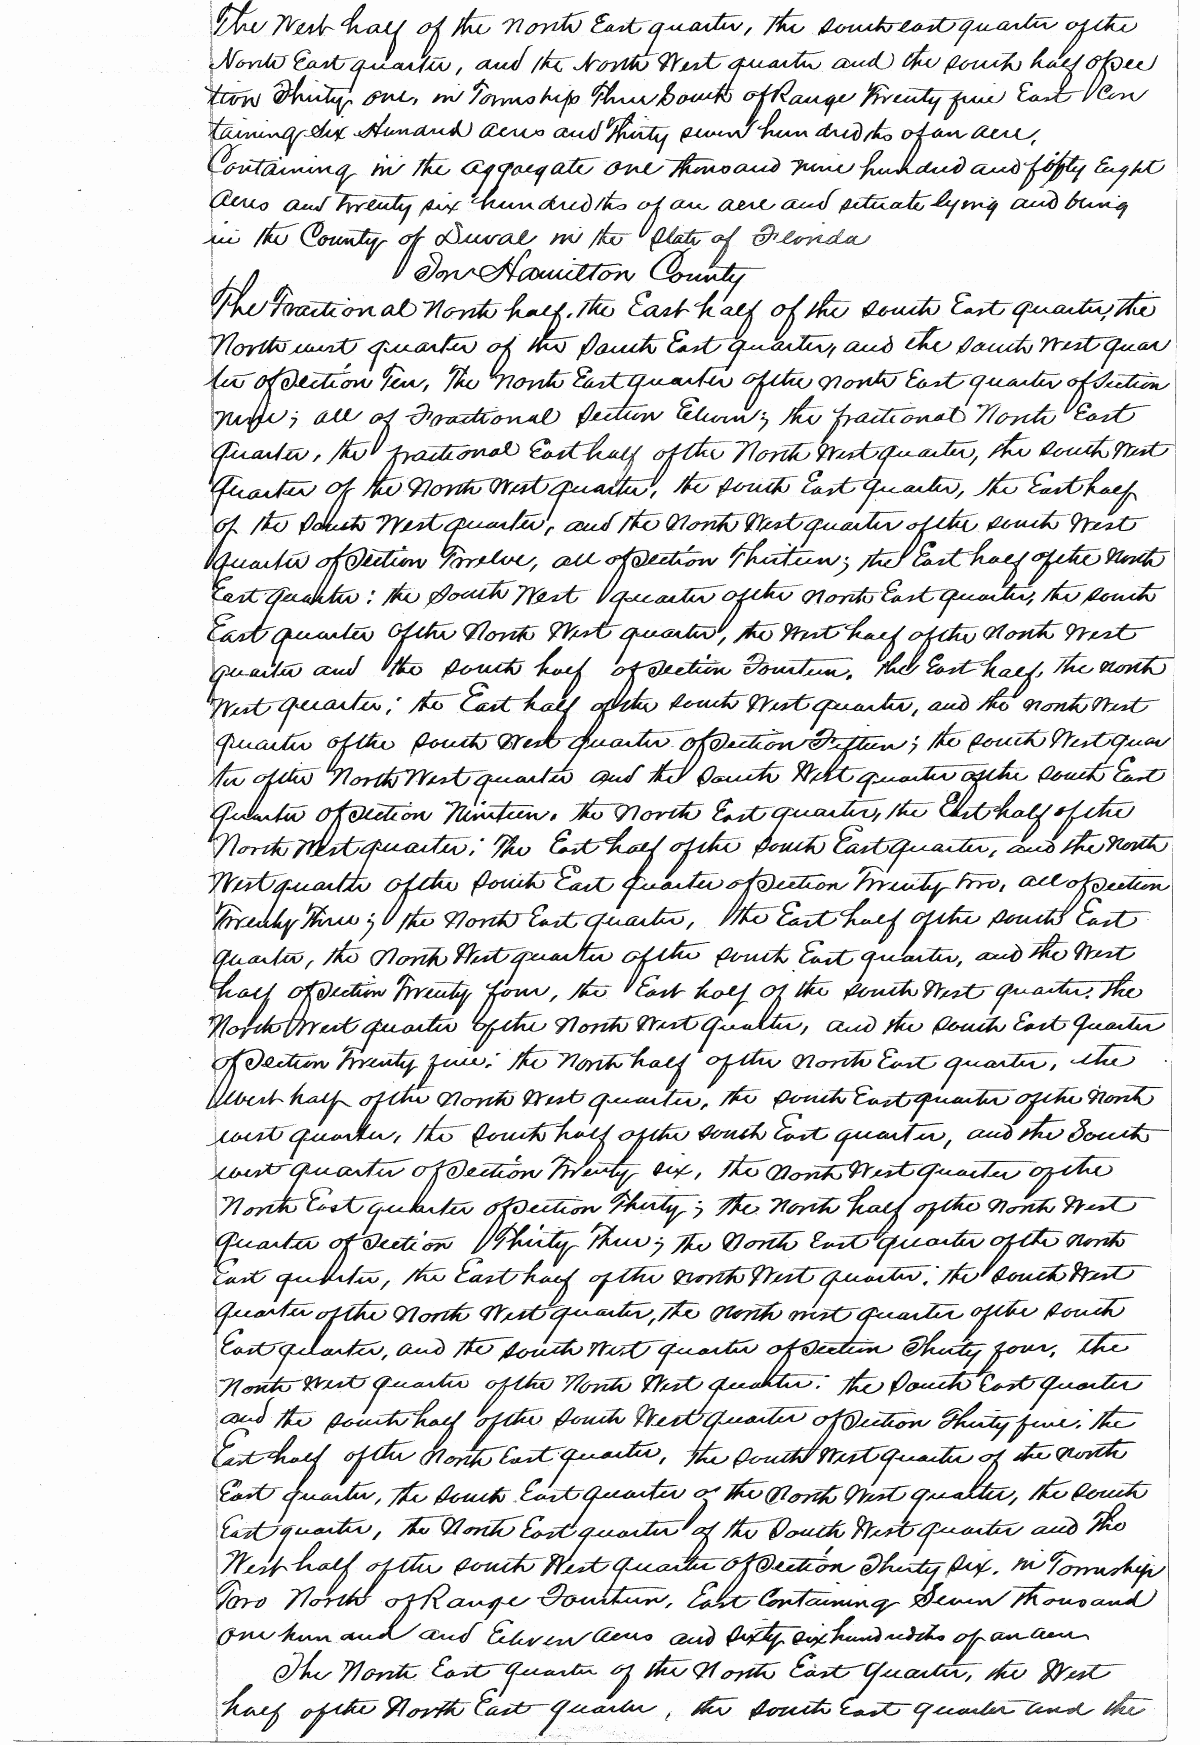 The West half of the North East quarter, the south east quarter of the
North East quarter, and the North West quarter and the south half of Sec
tion Thirty one, in Township Three South of Range Twenty five East Con
taining Six Hundred Acres and Thirty seven hundredths of an acre,
Containing in the aggregate one thousand nine hundred and fifty Eight
Acres and twenty six hundredths of an acre and situate lying and being
in the County of Duval in the State of Florida
In Hamilton County
The Fractional North half, the East half of the South East quarter, the
North west quarter of the South East quarter, and the South West quar
ter of Section Ten, The North East quarter of the North East quarter of Section
nine; all of Fractional Section Eleven; the fractional North East
quarter, the fractional East half of the North West quarter, the South West
quarter of the North West quarter, the South East quarter, the East half
of the South West quarter, and the North West quarter of the South West
quarter of Section Twelve, all of Section Thirteen; the East half of the North
East quarter: the South West quarter of the North East quarter, the South
East quarter of the North West quarter, the West half of the North West
quarter and the South half of Section Fourteen. the East half, the North
West quarter; the East half of the South West quarter, and the North West
quarter of the South West quarter of Section Fifteen; the South West quar
ter of the North West quarter and the South West quarter of the South East
quarter of Section Nineteen. the North East quarter, the East half of the
North West quarter; The East half of the South East quarter, and the North
West quarter of the South East quarter of Section Twenty two, all of Section
Twenty Three; the North East quarter, the East half of the South East
quarter, the North West quarter of the South East quarter, and the West
half of Section Twenty four, the East half of the South West quarter. The
North West quarter of the North West quarter, and the South East quarter
of Section Twenty five: the North half of the North East quarter, the
West half of the North West quarter, the South East quarter of the North
west quarter, the South half of the South East quarter, and the South
west quarter of Section Twenty six, the North West quarter of the
North East quarter of Section Thirty; the North half of the North West
quarter of Section Thirty Three; the North East quarter of the North
East quarter, the East half of the North West quarter; the South West
quarter of the North West quarter, the North west quarter of the South
East quarter, and the South West quarter of Section Thirty four, the
North West quarter of the North West quarter: the South East quarter
and the South half of the South West quarter of Section Thirty five: the
East half of the North East quarter, the South West quarter of the North
East quarter, the South East quarter of the North West quarter, the South
East quarter, the North East quarter of the South West quarter and The
West half of the South West quarter of Section Thirty Six. in Township
Two North of Range Fourteen, East Containing Seven thousand
one hundred and Eleven Acres and sixty six hundredths of an acre
The North East quarter of the North East quarter, the West
half of the North East quarter, the South East quarter and the